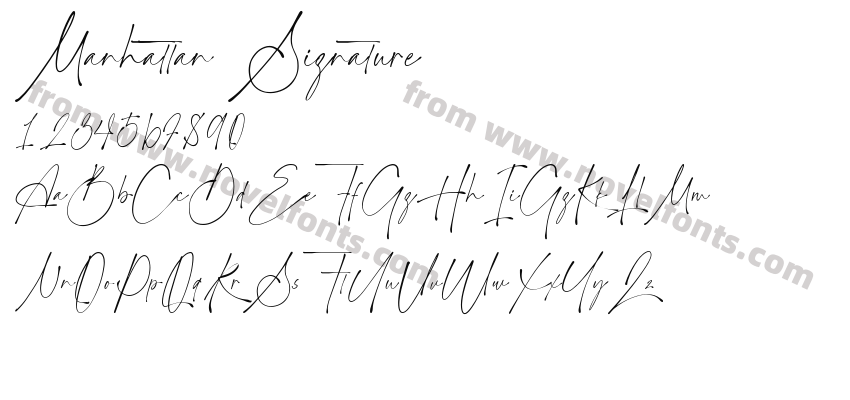 Manhattan Signature
1234567890
AaBbCcDdEeFfGgHhIiJjKkLlMm
NnOoPpQqRrSsTtUuVvWwXxYyZz
from www.novelfonts.com
from www.novelfonts.com